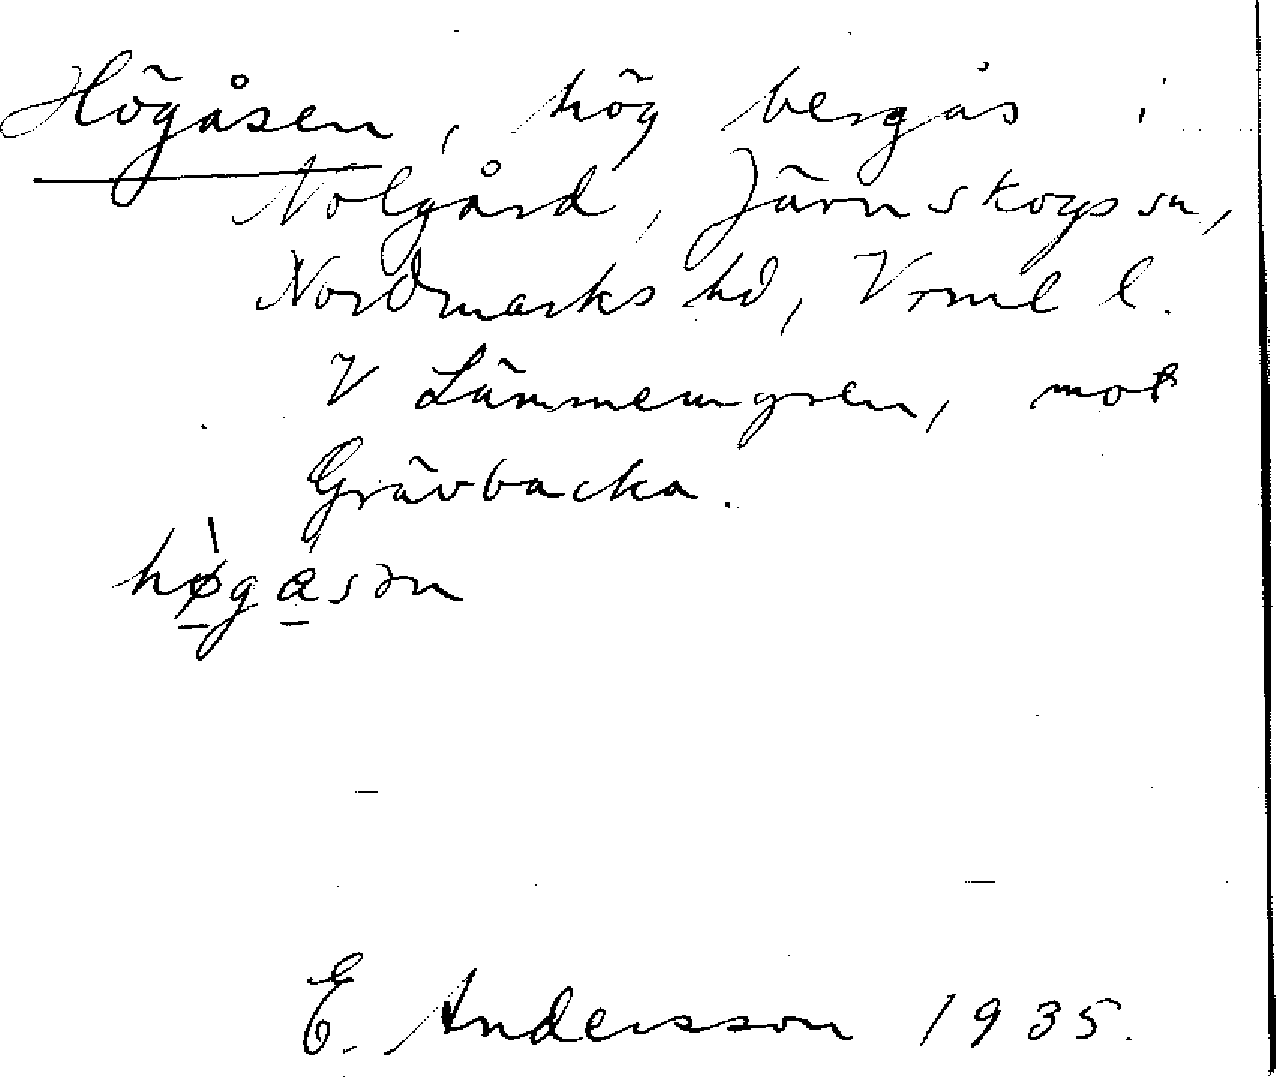 Högåsen, hög bergås i
Nolgård, Järnskogs sn,
Nordmarks hd, Vrml l.
V Lämmemgren, mot
Grävbacka.
hø̱̀ga̱sən
E. Andersson 1935.